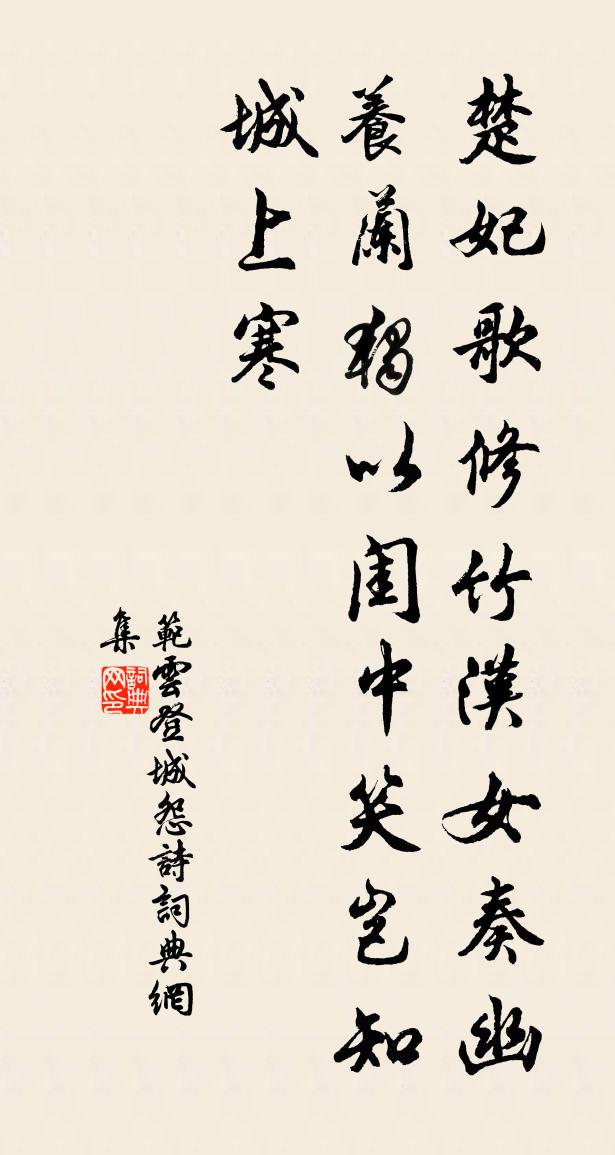 楚妃歌修竹漢女奏幽
養蘭獨以閨中笑豈知
城上寒
範雲登城怨詩詞典網
集
詞典
网印